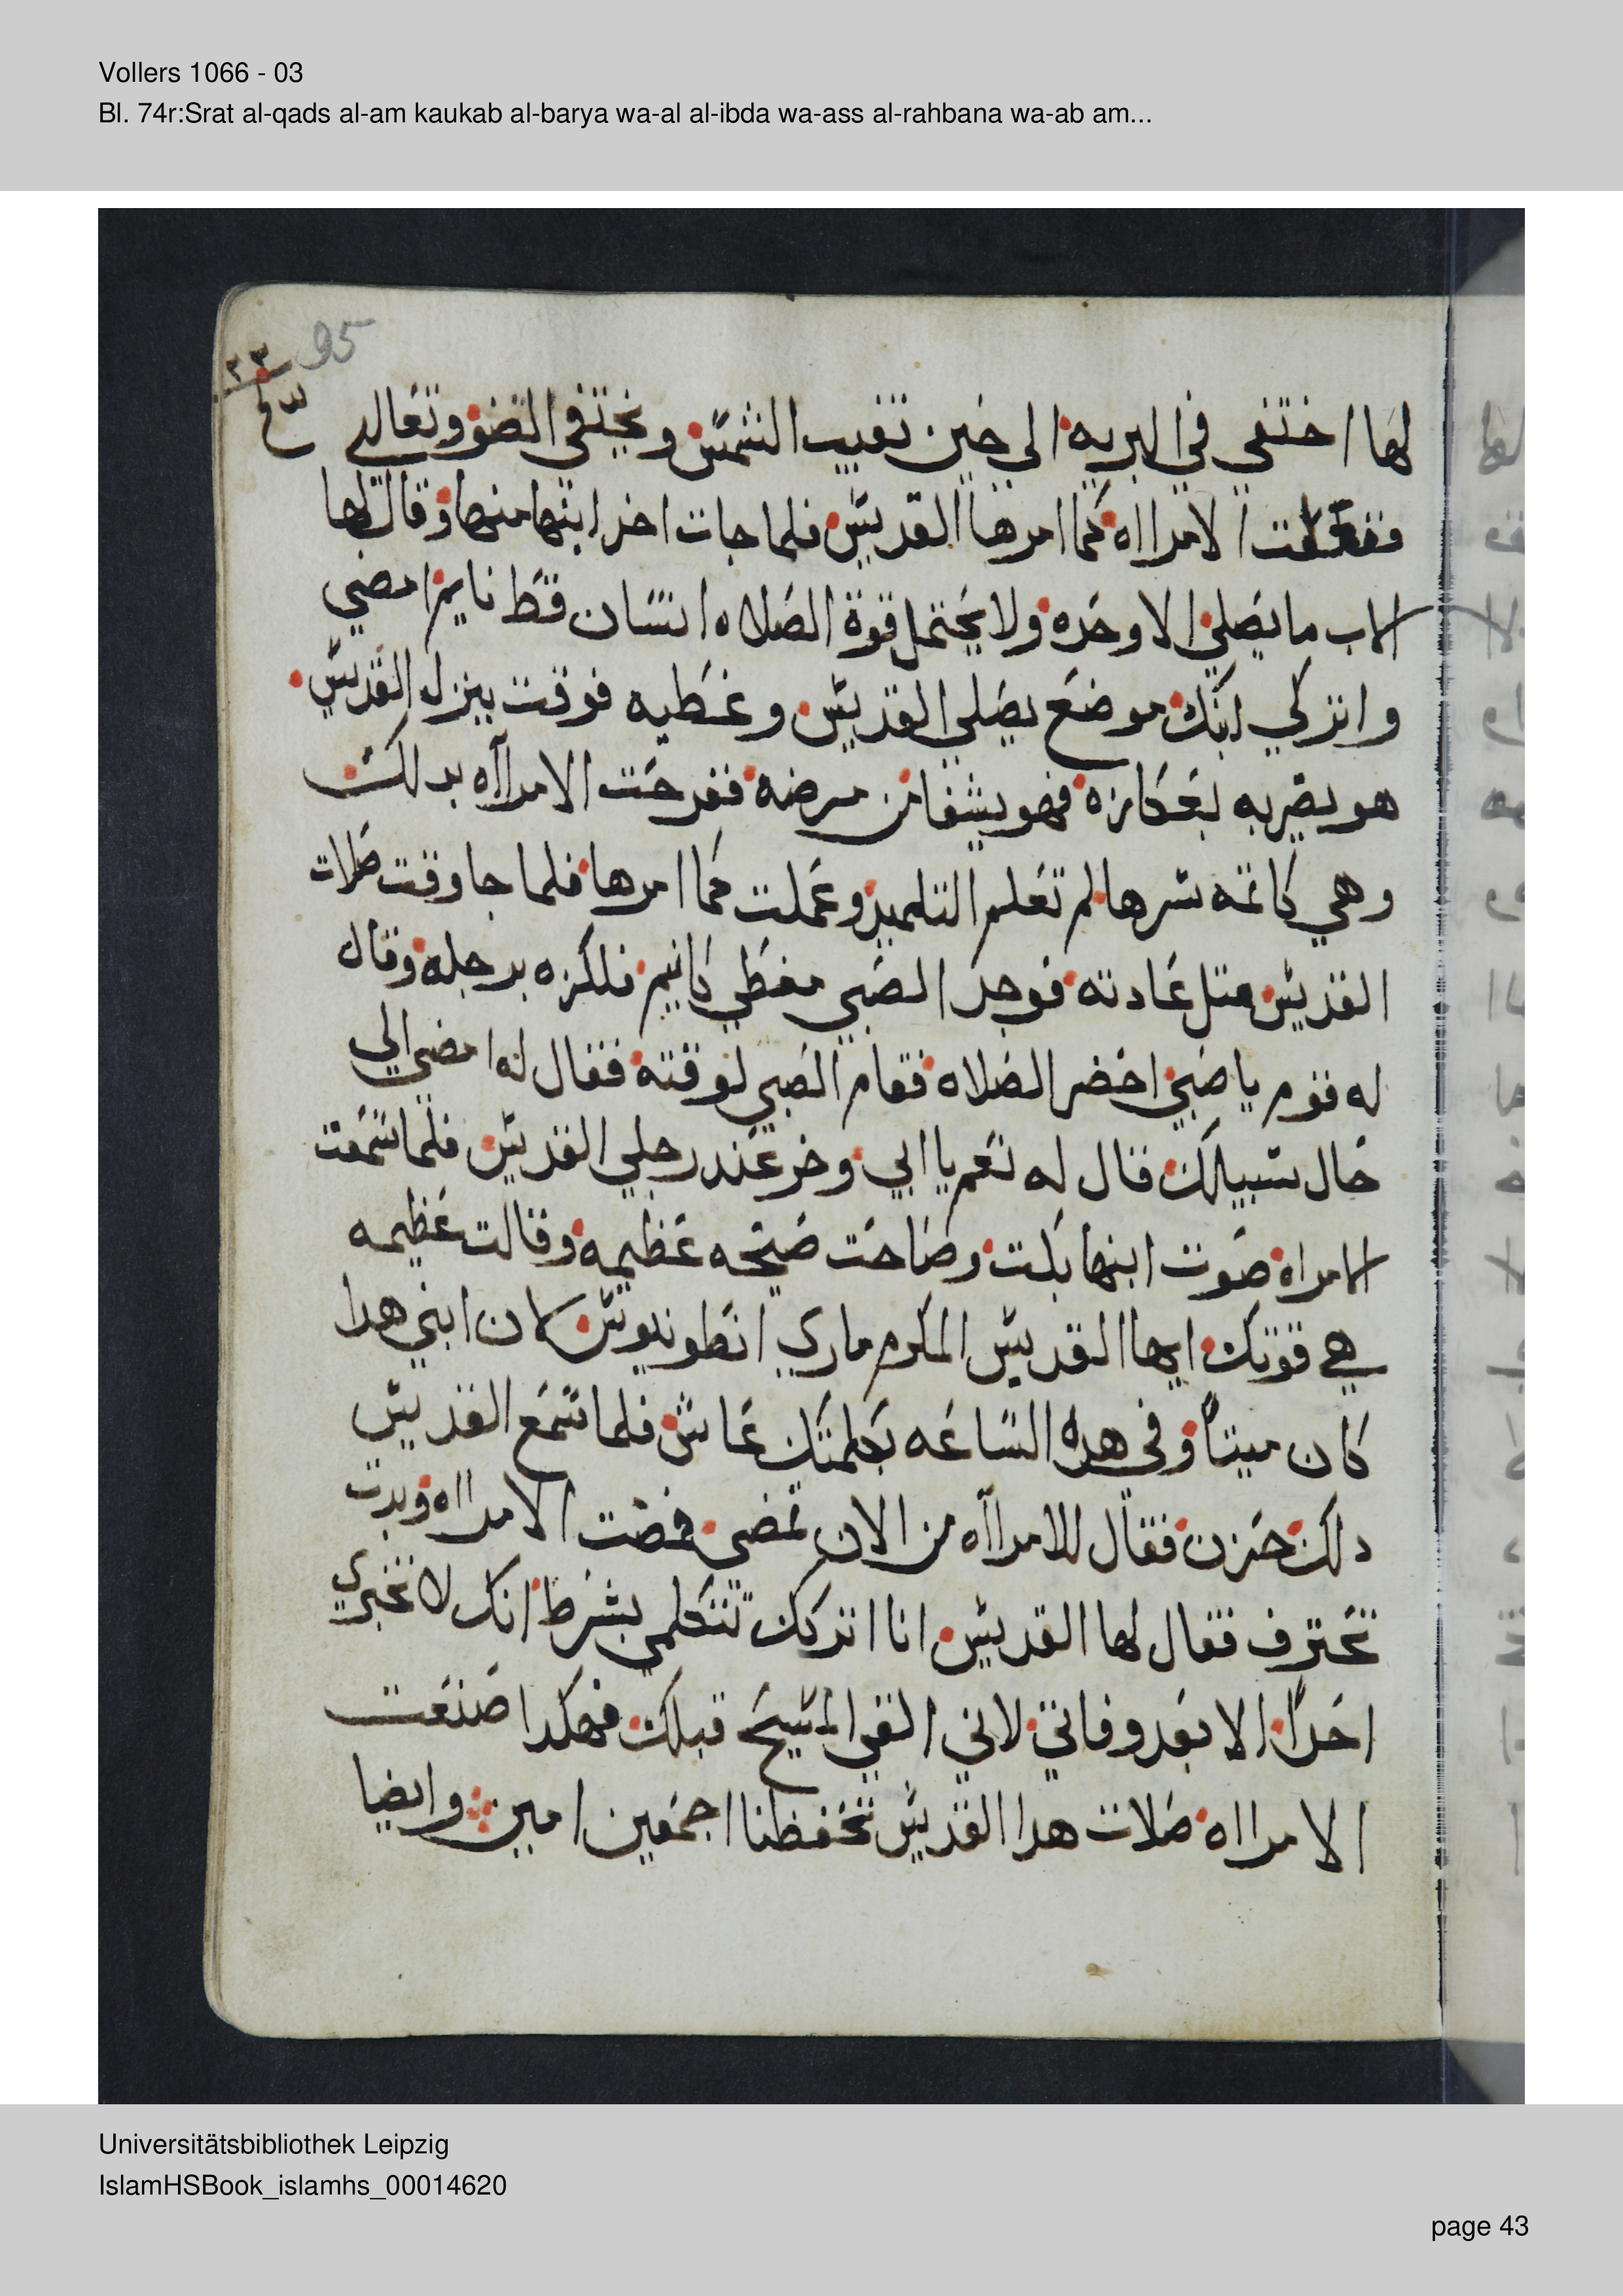 Vollers 1066 - 03
Bl. 74r:Srat al-qads al-am kaukab al-barya wa-al al-ibda wa-ass al-rahbana wa-ab am...
95
٢٣
لها اختفي في البريه الي حين تغيب الشمس ويختفي الضو وتعالي
ففعلت الامرااه كما امرها القديس فلما جات اخد ابنها منها وقال لها
الاب ما يصلي الا وحده ولا يحتمل قوة الصلاه انسان قط نايم امضي
واتركي ابنك موضع يصلي القديس وغطيه فوقت ينزل القديس
هو يضربه بعكازه فهو يشفا من مرضه ففرحت الامرااه بدلك
وهي كاتمه سرها لم تعلم التلميد وعملت كما امرها فلما جا وقت صلات
القديس متل عادته فوجد الصبي مغطي كانيم فلكزه برجله وقال
له قوم يا صبي احضر الصلاه فقام الصبي لوقته فقال له امضي الي
حال سبيلك قال له نعم يا ابي وخر عند رجلي القديس فلما سمعت
الامراه صوت ابنها بكت وصاحت صيحه عظيمه وقالت عظيمه
هي قوتك ايها القديس المكرم ماري انطونيوس كان ابني هدا
كان ميتا وفي هده الساعه بكلمتك عاش فلما سمع القديس
دلك حزن فقال للامرااه من الان تمضي فمضت الامرااه وبدت
تعترف فقال لها القديس انا اتركك تتكلمي بشرط انك لا تخبري
احدا الا بعد وفاتي لاني القي المسيح قبلك فهكدا صنعت
الامرااه صلات هدا القديس تحفظنا اجمعين امين وايضا
Universitätsbibliothek Leipzig
IslamHSBook_islamhs_00014620
page 43